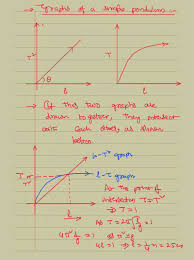 → Graphs of a simple pendulum :-
T²
θ
l
T
l
→ If this two graphs are
drawn together, they intersect
each other as shown
below.
l - T² graph
l - T graph
T
T²
l
At the point of
intersection T = T²
⇒ T = 1
T = 2π√(l/g) = 1
4π² l/g = 1
4l = 1 ⇒ l = 1/4 m = 25cm